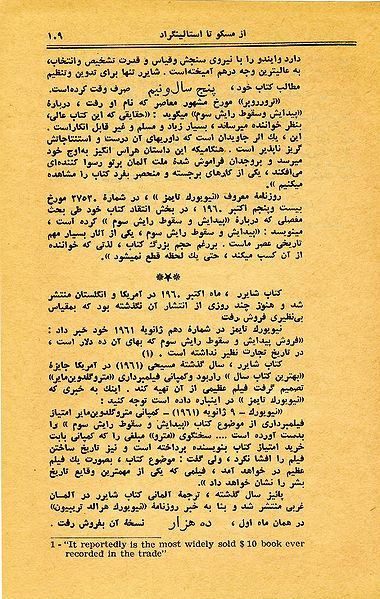 از مسکو تا استالینگراد
۱۰۹
دارد وایندو را با نیروی سنجش وقیاس و قدرت تشخیص وانتخاب،
به عالیترین وجه درهم آمیخته‌است . شایرر تنها برای تدوین وتنظیم
مطالب کتاب خود، پنج سال و نیم صرف وقت کرده‌است.
«تروررویر» مورخ مشهور معاصر که نام او رفت ، دربارهٔ
«پیدایش وسقوط رایش سوم» میگوید : «حقایقی که این کتاب عالی،
بنظر خواننده میرساند، بسیار زیاد و مسلم و غیر قابل انکار است .
این ، یك اثر جاویدان است که داوریهای آن درست و استنتاجاتش
گریز ناپذیر است . هنگامیکه این داستان هراس انگیز به‌اوج خود
میرسد و بروجدان فراموش شدهٔ ملت آلمان پرتو رسوا کننده‌ای
می‌افکند ، یکی از کارهای برجسته و منحصر بفرد کتاب را مشاهده
میکنیم ».
روزنامهٔ معروف «نیویورك تایمز» ، در شمارهٔ ۲۷۵۳۰ مورخ
بیست وپنجم اکتبر ۱۹۶۰ ، در بخش انتقاد کتاب خود طی بحث
مفصلی که دربارهٔ «پیدایش و سقوط رایش سوم » کرده است ،
مینویسد : «پیدایش و سقوط رایش سوم ، یکی از آثار بسیار مهم
تاریخی عصر ماست . بررغم حجم بزرگ کتاب ، لذتی که خواننده
از آن کسب میکند ، حتی یك لحظه قطع نمیشود ».
***
کتاب شایرر ، ماه اکتبر ۱۹۶۰ در آمریکا و انگلستان منتشر
شد و هنوز چند روزی از انتشار آن نگذشته بود که بمقیاس
بی‌نظیری فروش رفت
نیویورك تایمز در شمارهٔ دهم ژانویه ۱۹۶۱ خود خبر داد :
«فروش پیدایش و سقوط رایش سوم که بهای آن ده دلار است ،
در تاریخ تجارت نظیر نداشته است . (۱)
کتاب شایرر ، سال گذشته مسیحی (۱۹۶۱) در آمریکا جایزهٔ
«بهترین کتاب سال » راربود وکمپانی فیلمبرداری «متروگلدوین‌مایر»
تصمیم گرفت فیلم عظیمی از آن تهیه کند . اینك به خبری که
«نیویورك تایمز » در اینباره داده است توجه کنید :
«نیویورك – ۹ ژانویه (۱۹۶۱) – کمپانی متروگلدوین‌مایر امتیاز
فیلمبرداری از موضوع کتاب «پیدایش و سقوط رایش سوم » را
بدست آورده است .... سخنگوی «مترو» مبلغی را که کمپانی بابت
خرید امتیاز کتاب بنویسنده پرداخته است و نیز تاریخ ساختن
فیلم را افشا نکرد ، ولی گفت : موضوع کتاب ، بصورت یك فیلم
عظیم در خواهد آمد ، فیلمی که یکی از مهمترین وقایع تاریخ
بشر را نشان خواهد داد ».
پائیز سال گذشته ، ترجمهٔ آلمانی کتاب شایرر در آلمان
غربی منتشر شد و بنا به خبر روزنامهٔ «نیویورك هرالد تریبیون»
در همان ماه اول ، ده هزار نسخه آن بفروش رفت .
1 - "It reportedly is the most widely sold $ 10 book ever
recorded in the trade"